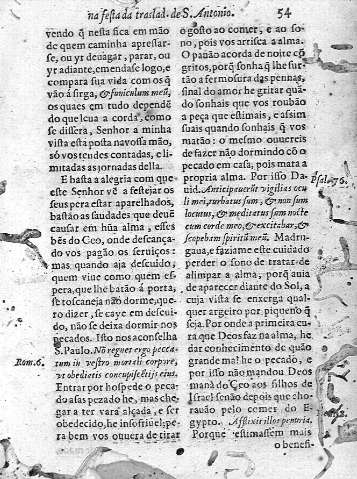 na festa da traslad. de S. Antonio. 54
vendo q̃ nesta fica em mão
de quem caminha apressar-
se, ou yr deuagar, parar, ou
yr adiante, emendase logo, e
compara sua vida com os q̃
vão á sirga, & funiculum meũ,
os quaes em tudo dependẽ
do que leua a corda: como
se dissera, Senhor a minha
vista esta posta na vossa mão,
só vos tendes contadas, e li-
mitadas as jornadas della.
E basta a alegria com que
este Senhor vẽ a festejar os
seus pera estar aparelhados,
bastão as saudades que deuẽ
causar em hũa alma, esses
bẽs do Ceo, onde descança-
do vos pagão os seruiços:
mas quando aja descuido,
quem viue como quem es-
pera, que lhe batão á porta,
se toscaneja não dorme, que-
ro dizer, se caye em descui-
do, não se deixa dormir nos
pecados. Isto nos aconselha
S. Paulo. Nõ regnet ergo pecca-
Rom. 6. tum in vestro mortali corpore,
vt obedietis concupiscẽtijs eius.
Entrar por hospede o peca-
do asas pezado he, mas che-
gar a ter vara alçada, e ser
obedecido, he insofriuel; pe-
ra bem vos ouuera de tirar
o gosto ao comer, e ao so-
no, pois vos arrisca a alma.
O pauão acorda de noite cõ
gritos, porq̃ sonha q̃ lhe fur-
tão a fermosura das pennas,
sinal do amor he gritar quã-
do sonhais que vos roubão
a peça que estimais, e assim
suais quando sonhais q̃ vos
matão: o mesmo ouuereis
de fazer não dormindo cõ o
pecado em casa, pois mata a
propria alma. Por isso Da-
uid. Anticipauerũt vigilias ocu Psal. 76.
li mei, turbatus sum, & non sum
locutus, & meditatus sum nocte
cum corde meo, & excitabar, &
scopebam spiritũ meũ. Madru-
gaua, e faziame este cuidado
perder o sono de tratar de
alimpar a alma, porq̃ auia
de aparecer diante do Sol, a
cuja vista se enxerga qual-
quer argeiro por piqueno q̃
seja. Por onde a primeira cu
ra que Deos faz na alma, he
dar conhecimento de quão
grande mal he o pecado, e
por isso não mandou Deos
maná do Ceo aos filhos de
Israel senão depois que cho-
rauão pelo comer do E-
gypto. Afflixit illos penuria.
Porque estimassem mais
o benefi-